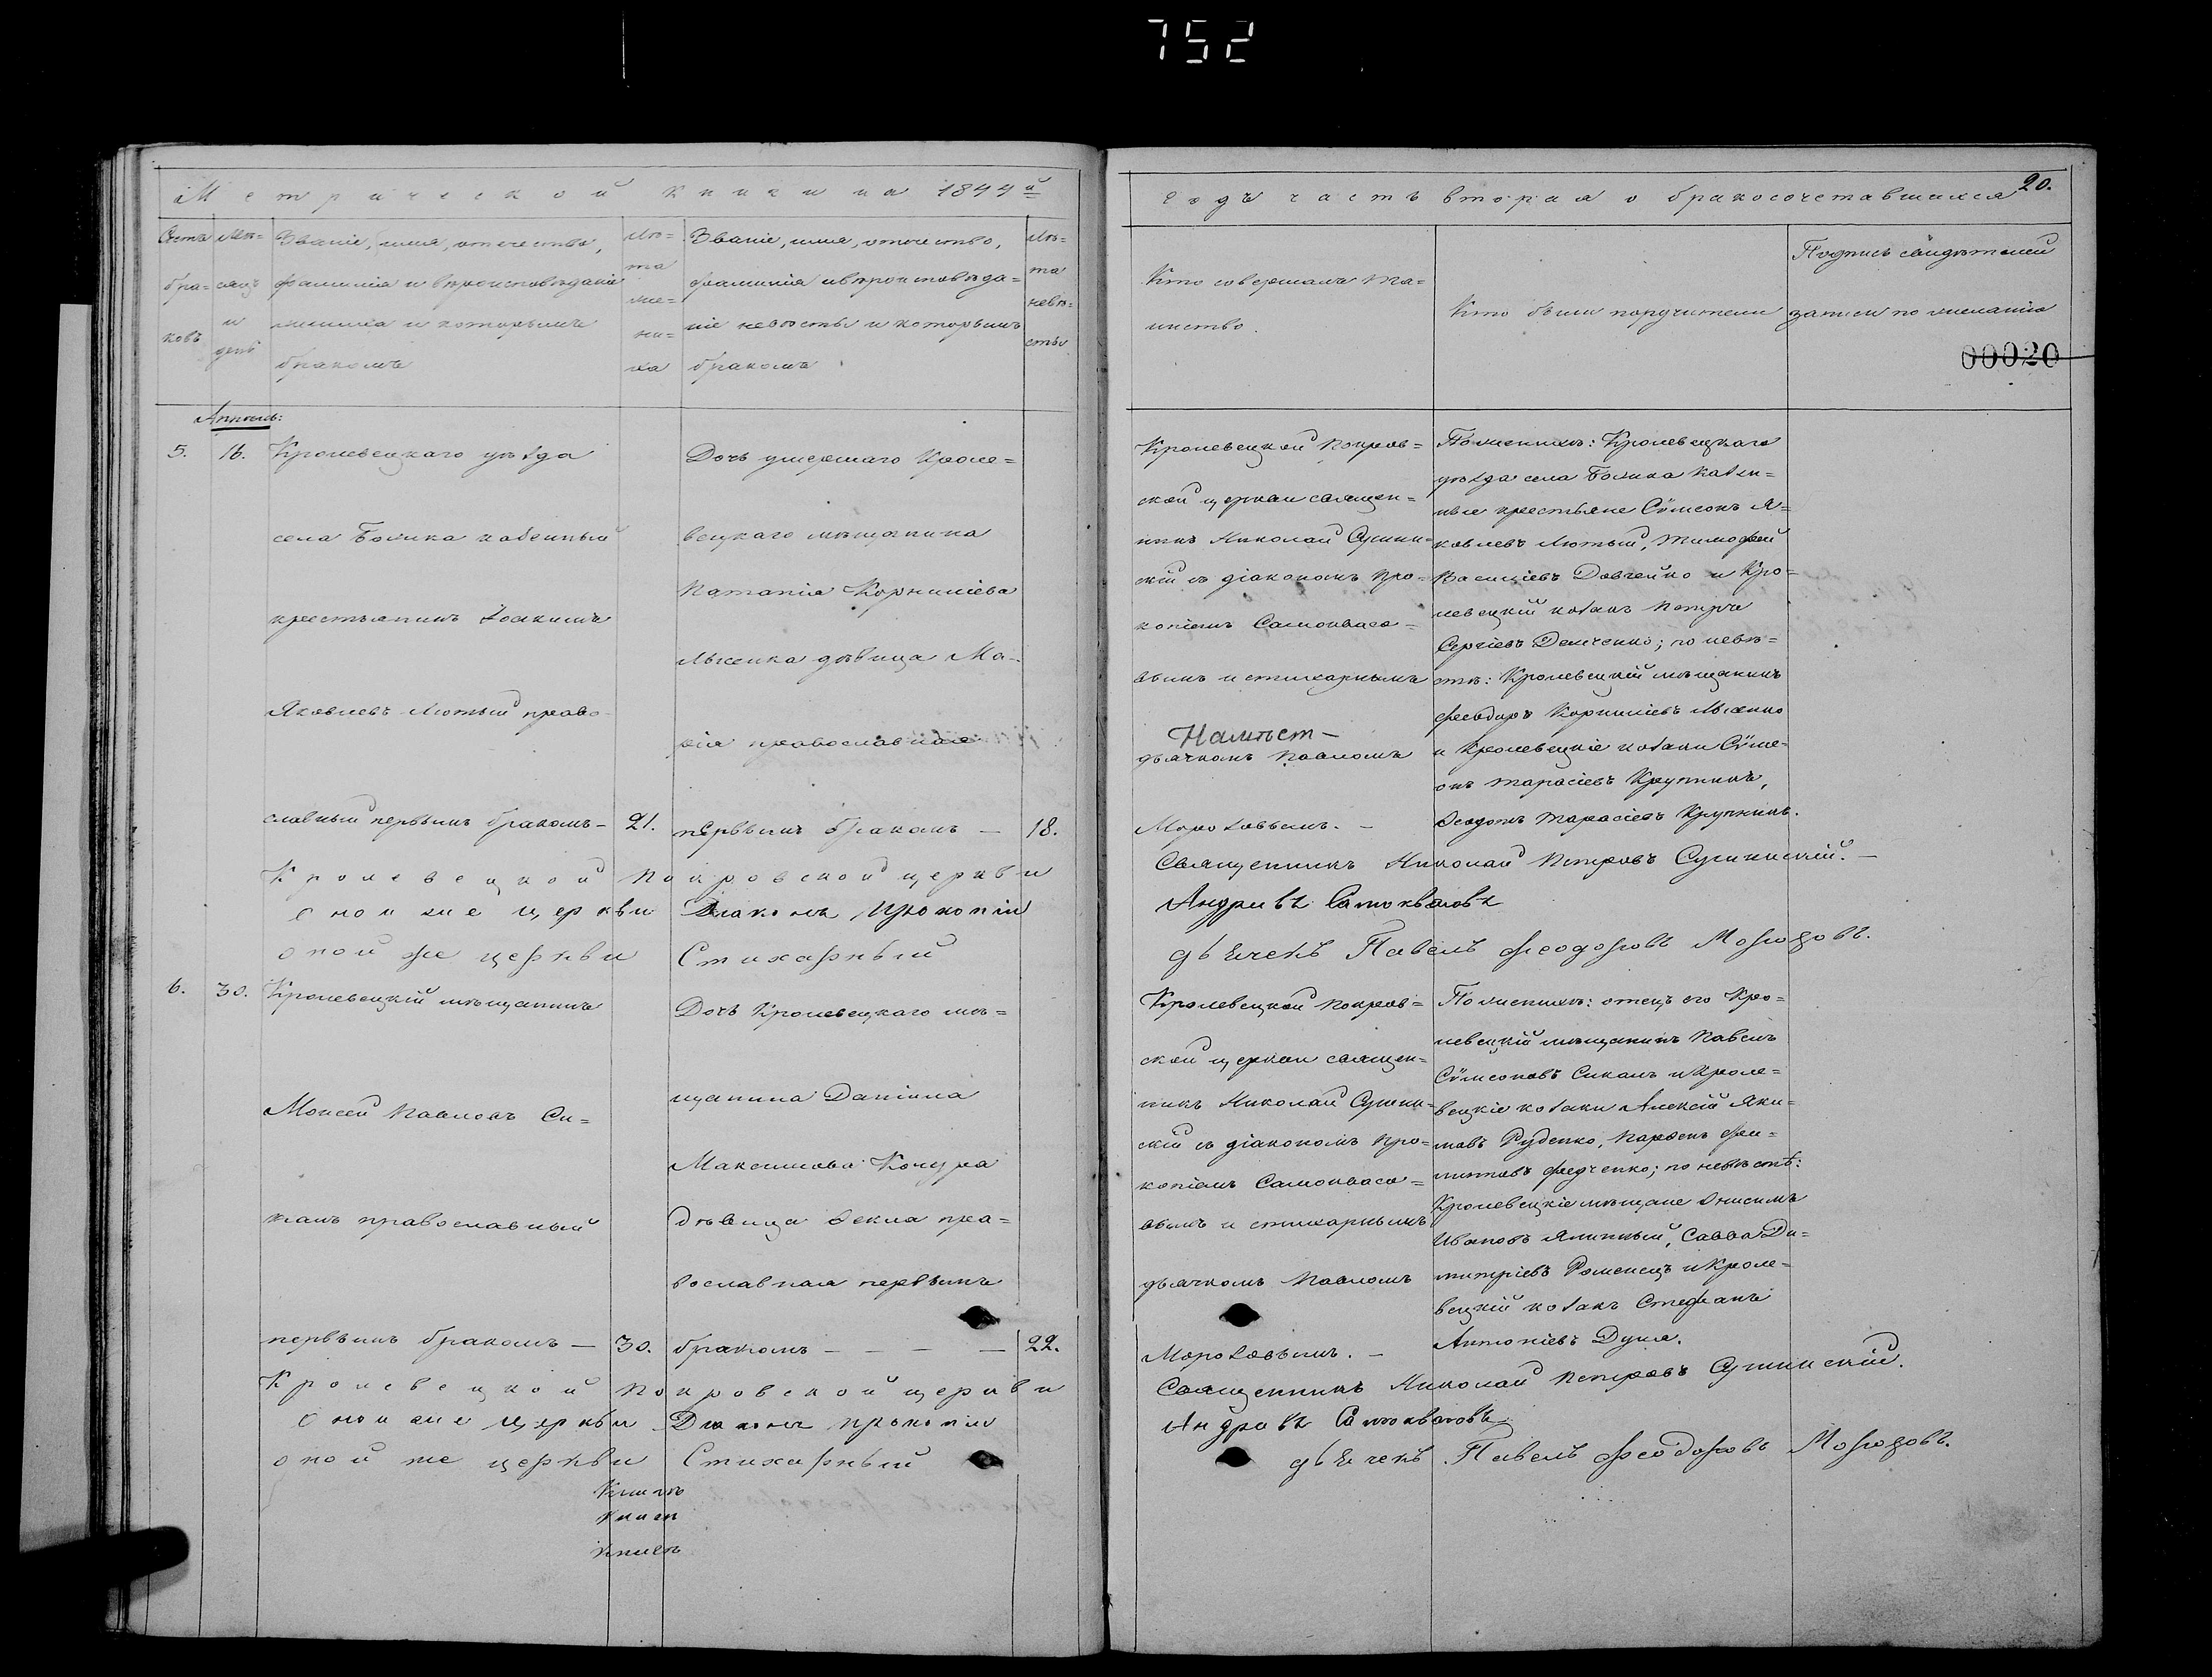 752
Метрической книги на 1844й
Счетъ бра-ковъ
Мѣ-сяцъ и день
Званіе, имя, отечество,
фамилія и вѣроисповѣданіе
жениха и которымъ
бракомъ
Лѣ-
та
же-
ни-
ха
Званіе, имя, отечество,
фамилія и вѣроисповѣда-
ніе невѣсты и которымъ
бракомъ
Лѣ-
та
невѣ-
сты
годъ часть вторая о бракосочетавшихся
20.
Кто совершалъ та-
инство.
Кто были поручители
Подпись свидѣтелей
записи по желанію
00020
Апрѣль:
5.
16.
Кролевецкаго уѣзда
села Божка казенный
крестьянинъ Іоакимъ
Яковлевъ Лютый право-
славный первымъ бракомъ —
21.
Дочь умершаго Кроле-
вецкаго мѣщанина
Корниліева
дѣвица Ма-
рія православная
первымъ бракомъ —
18.
Кролевецкой Покров-
ской церкви священ-
никъ Николай Сушин-
скій съ діакономъ Про-
копіемъ Самокваса-
вымъ и стихарнымъ
дьячкомъ Павломъ
Морозовымъ. —
По женихѣ: Кролевецкаго
уѣзда села Божка казен-
ные крестьяне Сѵмеонъ Я-
ковлевъ Лютый, Тимофей
Василіевъ Довгейко и Кро-
левецкій козакъ Петръ
Сергіевъ Демченко; по невѣ-
стѣ: Кролевецкій мѣщанинъ
Феодоръ Корниліевъ
и Кролевецкіе козаки Сѵме-
онъ Тарасіевъ Крупкинъ,
Ѳеодотъ Тарасіевъ Крупкинъ.
Кролевецкой Покровской церкви Священникъ Николай Петровъ Сушинскій. —
Оной же церкви Діаконъ Прокопій Андреевъ Самоквасовъ
оной же церкви Стихарный дьячекъ Павелъ Феодоровъ Морозовъ.
6.
30.
Кролевецкій мѣщанинъ
Моисей Павловъ Си-
канъ православный
первымъ бракомъ —
30.
Дочь Кролевецкаго мѣ-
щанина Даніила
Максимова Кочура
дѣвица Ѳекла пра-
вославная первымъ
бракомъ — — — —
22.
Кролевецкой Покров-
ской церкви священ-
никъ Николай Сушин-
скій съ діакономъ Про-
копіемъ Самокваса-
вымъ и стихарнымъ
дьячкомъ Павломъ
Морозовымъ. —
По женихѣ: отецъ его Кро-
левецкій мѣщанинъ Павелъ
Сѵмеоновъ Сиканъ и Кроле-
вецкіе козаки Алексѣй Яки-
мовъ Руденко, Парѳенъ Фи-
липповъ Федченко; по невѣстѣ:
Кролевецкіе мѣщане Онисимъ
Ивановъ Ялинный, Савва Ди-
митріевъ Роменецъ и Кроле-
вецкій козакъ Стефанъ
Антоніевъ Дуля.
Кролевецкой Покровской церкви Священникъ Николай Петровъ Сушинскій.
Оной же церкви Діаконъ Прокопій Андреевъ Самоквасовъ
оной же церкви Стихарный дьячекъ Павелъ Феодоровъ Морозовъ.